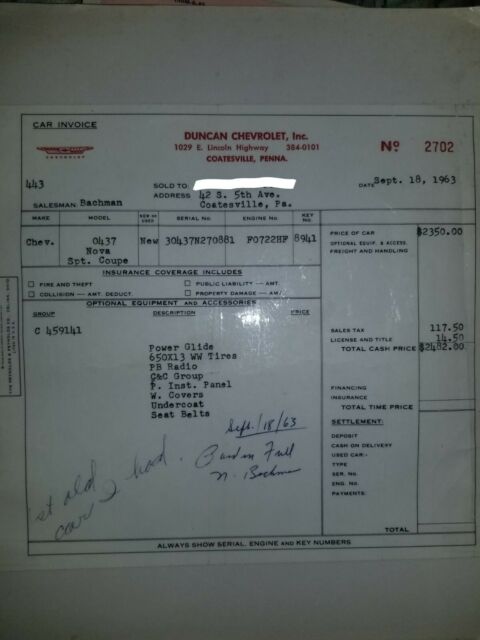 CAR INVOICE
CHEVROLET
DUNCAN CHEVROLET, Inc.
1029 E. Lincoln Highway 384-0101
COATESVILLE, PENNA.
No 2702
443
SOLD TO:
DATE Sept. 18, 1963
ADDRESS 42 S. 5th Ave.
SALESMAN Bachman Coatesville, Pa.
MAKE MODEL NEW OR USED SERIAL No. ENGINE No. KEY No.
Chev. 0437 New 30437N270881 F0722HF 8941
Nova
Spt. Coupe
PRICE OF CAR $2350.00
OPTIONAL EQUIP. & ACCESS.
FREIGHT AND HANDLING
INSURANCE COVERAGE INCLUDES
FIRE AND THEFT PUBLIC LIABILITY — AMT.
COLLISION — AMT. DEDUCT. PROPERTY DAMAGE — AMT.
OPTIONAL EQUIPMENT AND ACCESSORIES
GROUP DESCRIPTION PRICE
C 459141
Power Glide
650X13 WW Tires
PB Radio
C&C Group
P. Inst. Panel
W. Covers
Undercoat
Seat Belts
SALES TAX 117.50
LICENSE AND TITLE 14.50
TOTAL CASH PRICE $2482.00
FINANCING
INSURANCE
TOTAL TIME PRICE
SETTLEMENT:
DEPOSIT
CASH ON DELIVERY
USED CAR:-
TYPE
SER. No.
ENG. No.
PAYMENTS:
TOTAL
Sept. /18/63
Paid in Full
N. Bachman
1st old
car I had.
ALWAYS SHOW SERIAL, ENGINE AND KEY NUMBERS